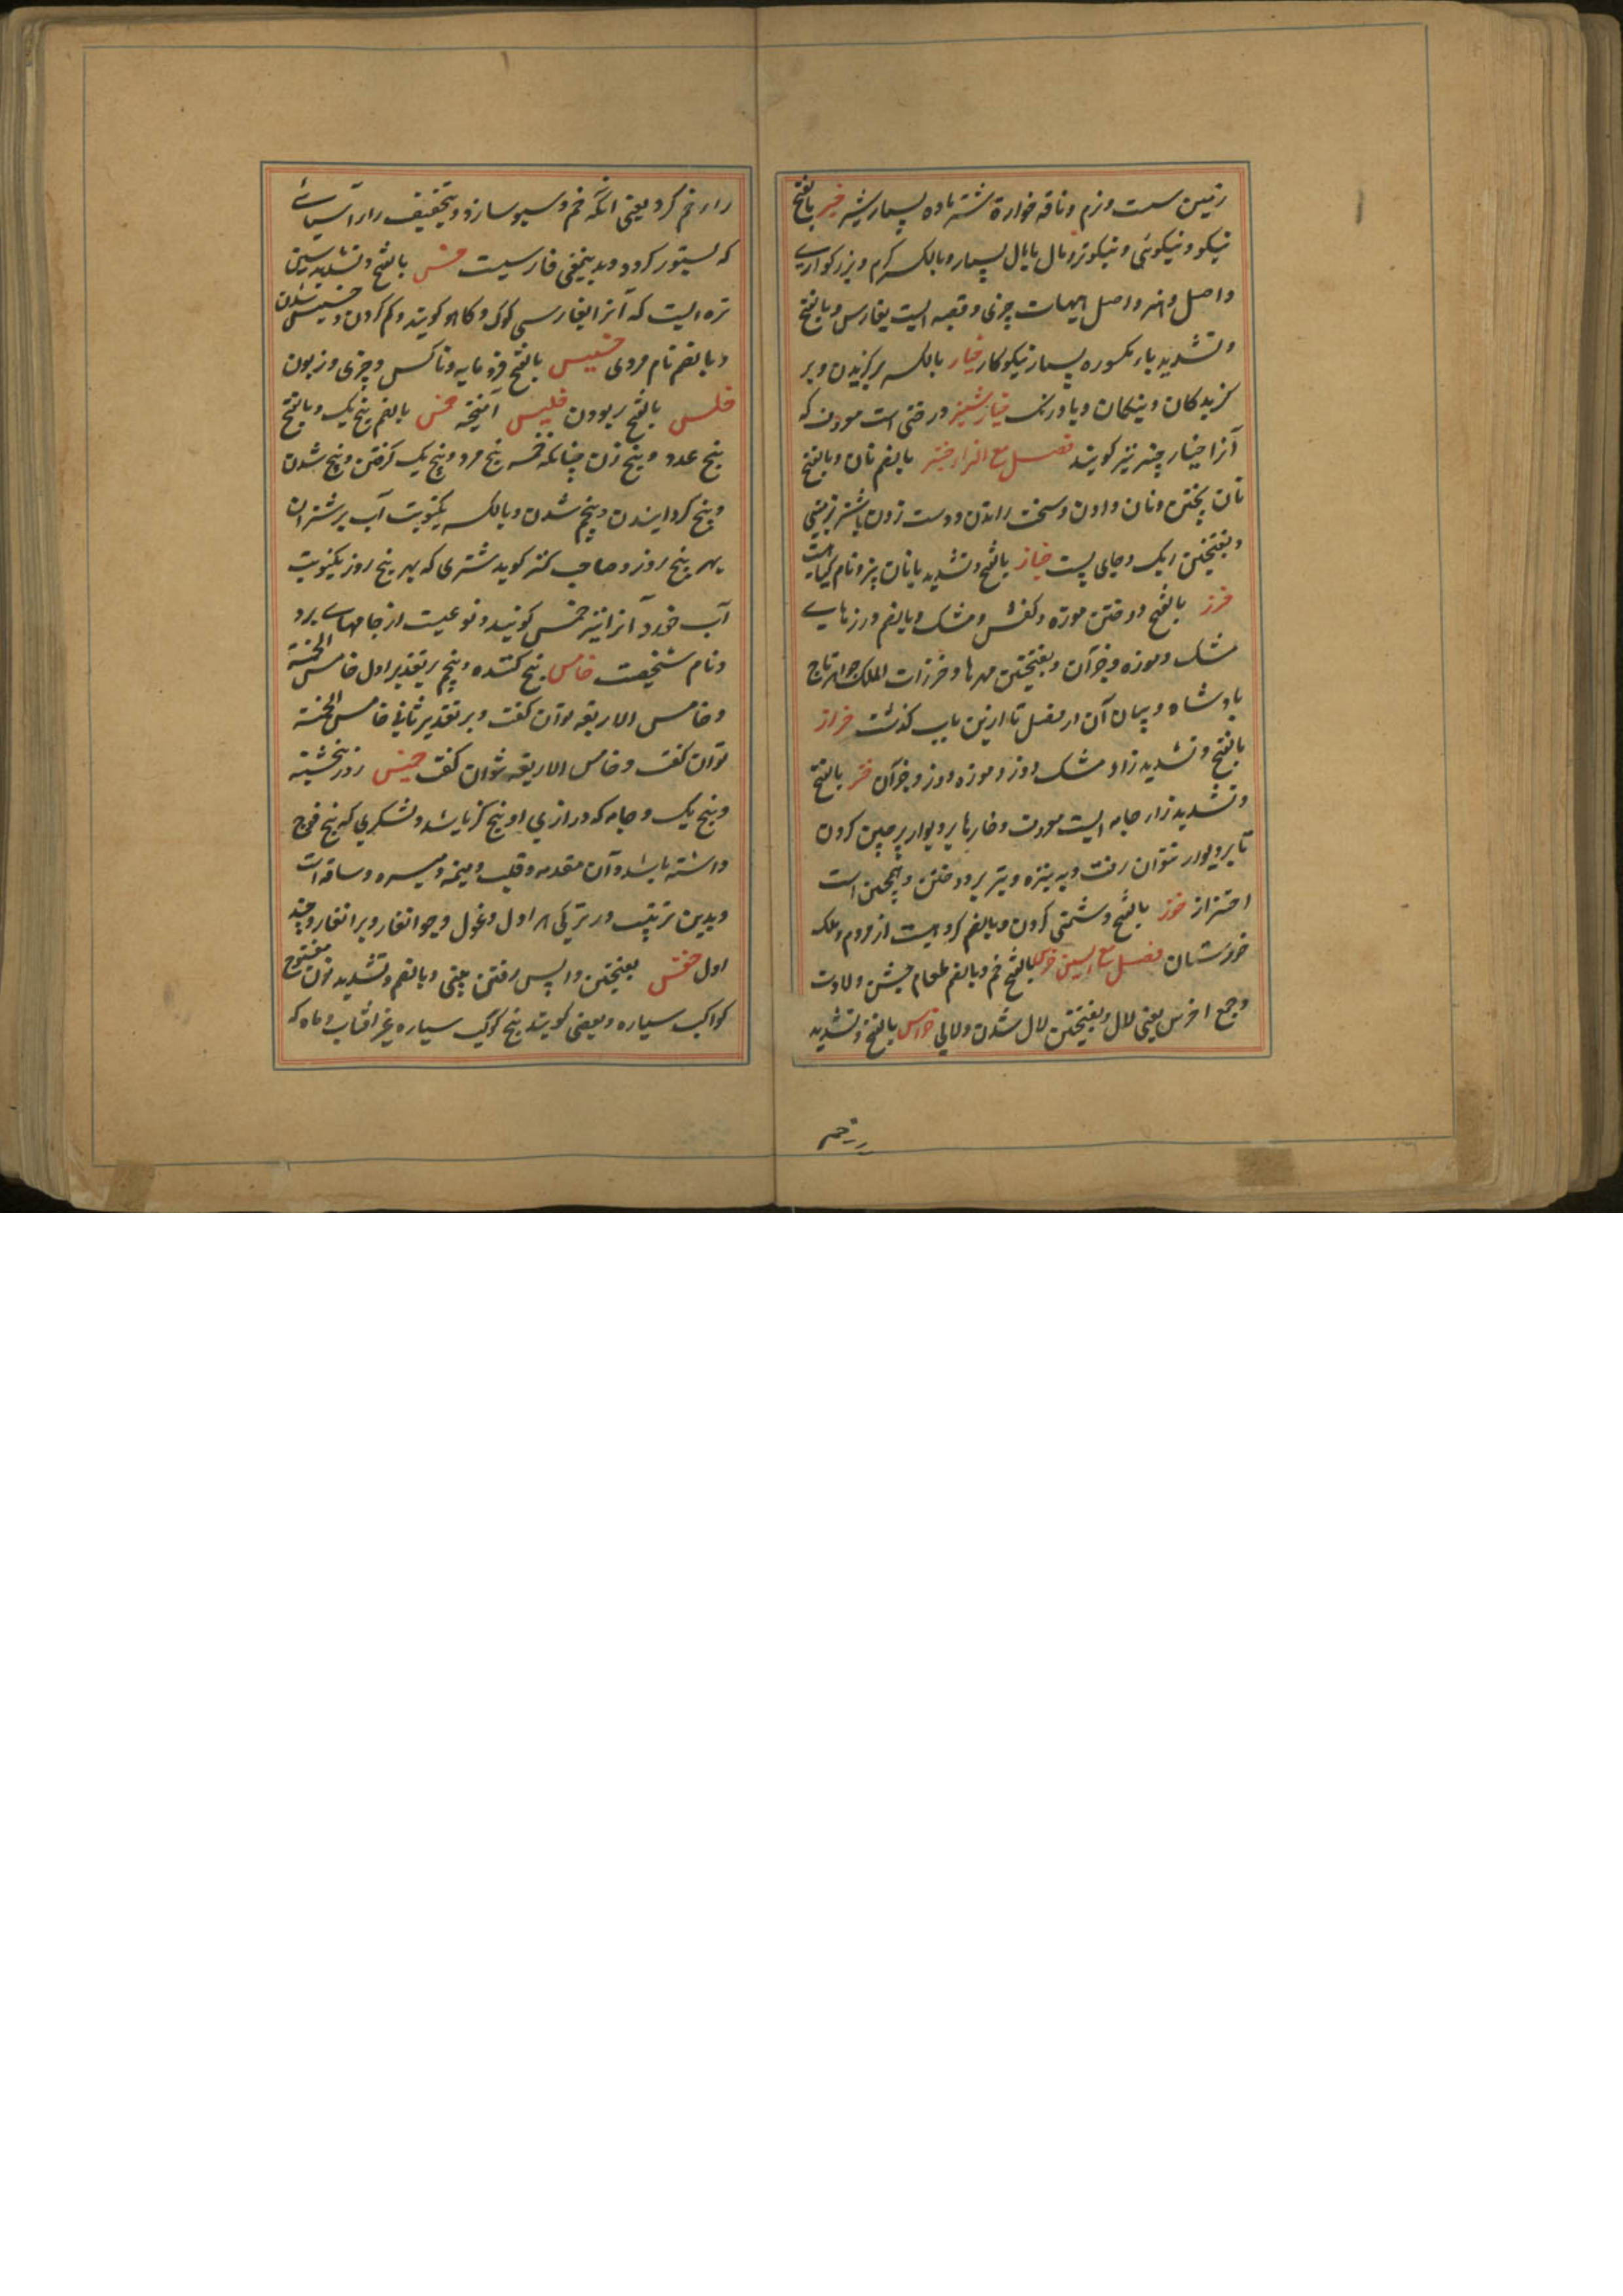 زمین سست و نرم و ناقه خواره شتر ماده بسیار شیر خیر بالفتح
نیکو و نیکوئی و نیکوتر و مال یا مال بسیار و بالکسر کرم و بزرکواری
و اصل و اصل چیزی و قصبه ایست بفارس و بالفتح
و تشدید یاء مکسوره بسیار نیکوکار خیار بالکسر برکزیدن و بر
کزیدکان و نیکان و بادرنک خیارشنبر درختی است معروف که
آنرا خیار چنبر نیز کویند فصل مع الزاء خبز بالضم نان و بالفتح
نان پختن و نان دادن و سخت راندن و دست زدن شتر بزمین
و بفتحتین و جای پست خباز بالفتح و تشدید با نان پز و نام کیاهیست
خرز بالفتح دوختن موزه و کفش و مشک و بالضم درزهای
مشک و موزه و جز آن و بفتحتین مهرها و خرزات الملک جواهر تاج
پادشاه و بیان آن در فصل تا ازین باب کذشت خراز
بالفتح و تشدید زاء مشک دوز و موزه دوز و جز آن خز بالفتح
و تشدید زاء جامه ایست معروف و خارها بر دیوار پرچین کردن
تا بر دیوار نتوان رفت و به نیزه و تیر بردوختن و همچنین است
اختزاز خوز بالفتح دشمنی کردن و بالضم کروهیست از مردم و ملک
خوزستان فصل مع السین خرس بالفتح خم و بالضم طعام جشن ولادت
و جمع اخرس یعنی لال و بفتحتین لال شدن و لالی خراس بالفتح و تشدید
راء خم کر یعنی آنکه خم و سبو سازد و بتخفیف راء آسیائی
که بستور کردد و بدینمعنی فارسیست خس بالفتح و تشدید سین
تره ایست که آنرا بفارسی کوک و کاهو کویند و کم کردن و خسیس شدن
و بالضم نام مردی خسیس بالفتح فرومایه و ناکس و چیزی زبون
خلس بالفتح ربودن خلیس آمیخته خمس بالضم پنج یک و بالفتح
پنج عدد و پنج زن چنانکه خمسه پنج مرد و پنج یک کرفتن و پنج شدن
و پنج کردانیدن و پنجم شدن و بالکسر یکنوبت آب بر شتران
بهر پنج روز و صاحب کنز کوید شتری که بهر پنج روز یکنوبت
آب خورد آنرا نیز خمس کویند و نوعیست از جامهای برد
و نام شخصیت خامس پنج کننده و پنجم بر تقدیر اول خامس الخمسة
و خامس الاربعه توان کفت و بر تقدیر ثانی خامس الخمسة
توان کفت و خامس الاربعه نتوان کفت خمیس روز پنجشنبه
و پنج یک و جامه که درازی او پنج کز باشد و لشکری که پنج فوج
داشته باشد و آن مقدمه و قلب و میمنه و میسره و ساقه است
و بدین ترتیب در ترکی هراول و غول و جوانغار و برانغار و چند
اول خنس بفتحتین واپس رفتن بینی و بالضم و تشدید نون مفتوح
کواکب سیاره و بعضی کویند پنج کوکب سیاره غیر آفتاب و ماه که